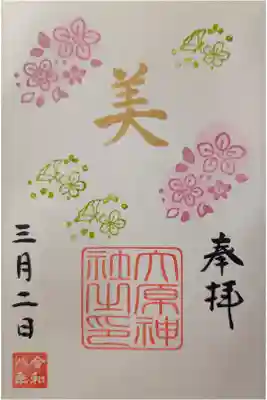 奉拝
美
大原神
社之印
三月二日
令和